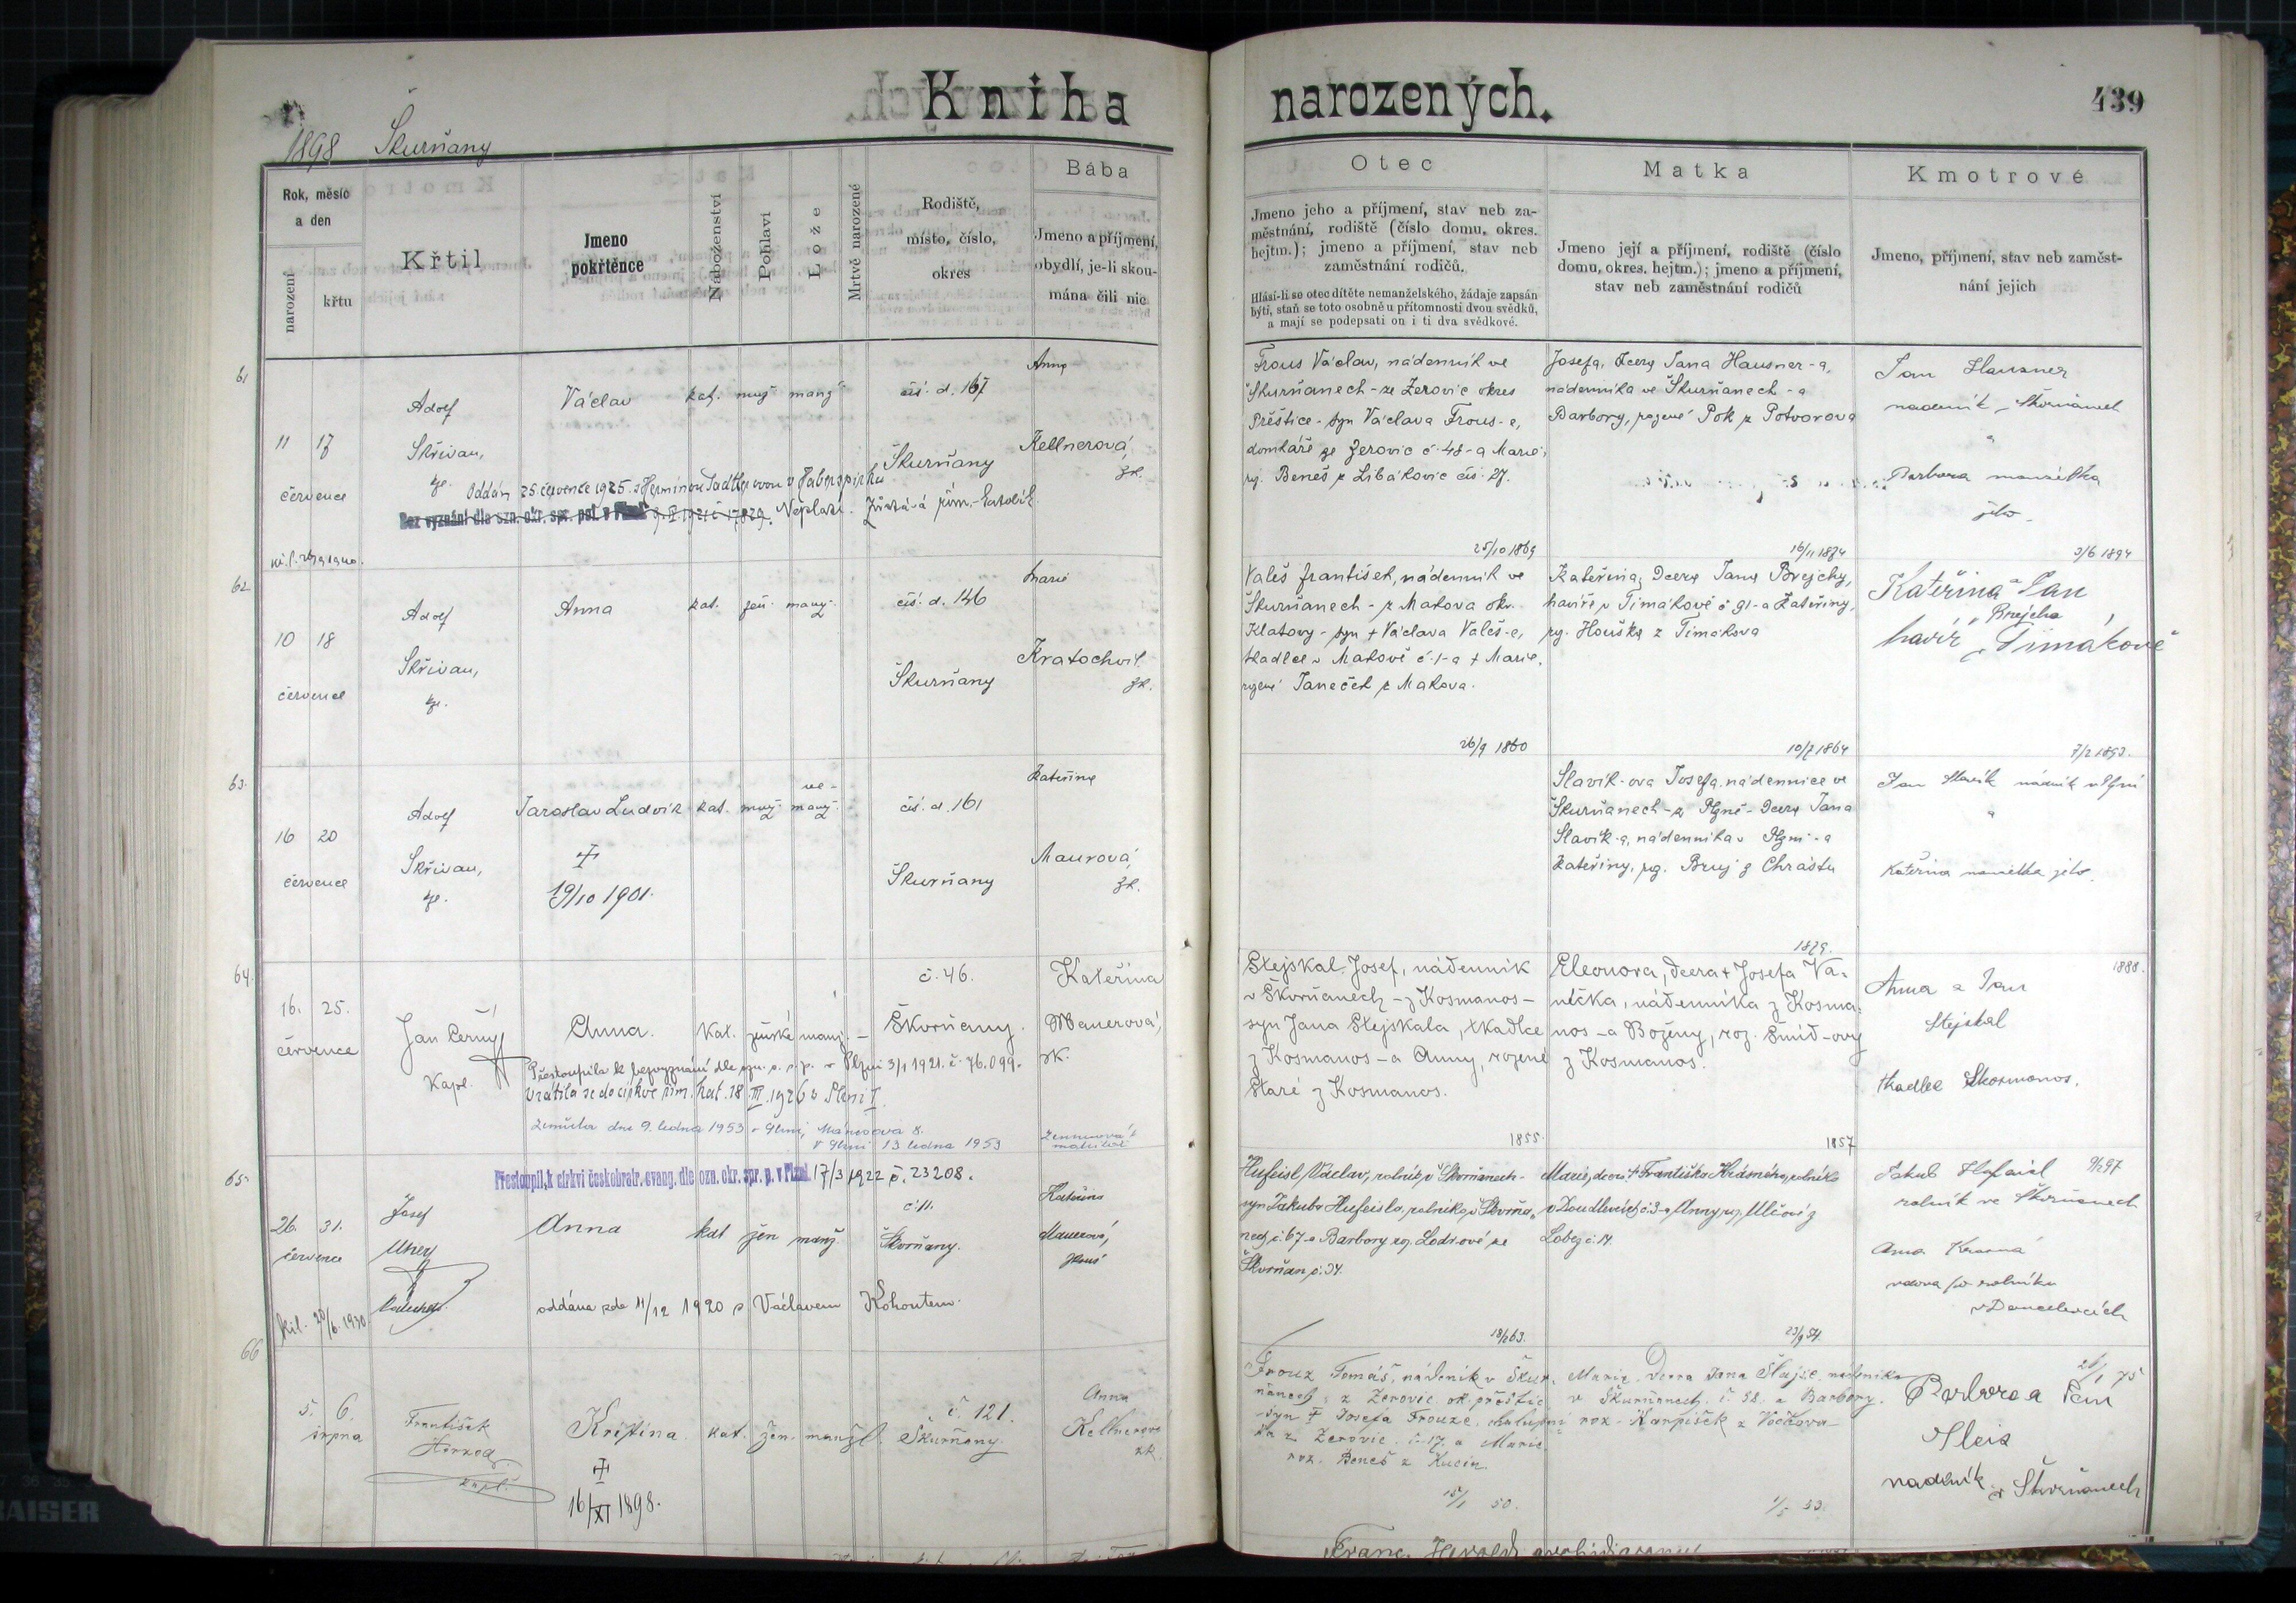 Kniha narozených.
439
1898 Škurňany
Rok, měsíc a den
narození
křtu
Křtil
Jmeno pokřtěnce
Náboženství
Pohlaví
Lože
Mrtvě narozené
Rodiště, místo, číslo, okres
Bába
Jmeno a příjmení, obydlí, je-li skoumána čili nic
Otec
Jmeno jeho a příjmení, stav neb zaměstnání, rodiště (číslo domu, okres. hejtm.); jmeno a příjmení, stav neb zaměstnání rodičů.
Hlásí-li se otec dítěte nemanželského, žádaje zapsán býti, staň se toto osobně u přítomnosti dvou svědků, a mají se podepsati on i ti dva svědkové.
Matka
Jmeno její a příjmení, rodiště (číslo domu, okres. hejtm.); jmeno a příjmení, stav neb zaměstnání rodičů
Kmotrové
Jmeno, příjmení, stav neb zaměstnání jejich
61
11 17
července
Adolf
Skřivan,
Václav
kat. muž manž
čís. d. 167
Škurňany
Anna
Kellnerová,
zk.
Oddán 25. července 1925 s Hermínou
Bez vyznání dle ozn. okr. spr. pol. v Plzni
Neplatí. Zůstává řím.-katolík.
Frous Václav, nádenník ve
Škurňanech - ze Žerovic okres
Přeštice - syn Václava Frous-e,
domkáře ze Žerovic č. 48 - a Marie,
rz. Beneš z Libákovic čís. 27.
25/10 1869
Josefa, dcera Jana Hausner-a,
nádenníka ve Škurňanech - a
Barbory, rozené Pok z Potvorova
Jan Hausner
nadeník
Barbora manželka
jeho
62
10 18
července
Adolf
Skřivan,
Anna
kat. žen. manž.
čís. d. 146
Škurňany
Marie
Kratochvíl.
zk.
Valeš František, nádenník ve
Škurňanech - z Makova okr.
Klatovy - syn † Václava Valeš-e,
tkadlce v Makově č. 1 - a † Marie,
rozené Janeček z Makova.
26/9 1860
Kateřina, dcera Jana Brejchy,
havíře v Timákově č 91 - a Kateřiny,
rz. Houška z Timákova
10/7 1864
3/6 1894
Kateřina a Jan
Brejcha
havíř v Timákově
63.
16 20
července
Adolf
Skřivan,
Jaroslav Ludvík
kat. muž. nemanž.
19/10 1901.
čís. d. 161
Škurňany
Kateřina
Maurová,
zk.
Slavík-ova Josefa, nádennice ve
Škurňanech - z Plzně - dcera Jana
Slavík-a, nádenníka v Plzni - a
Kateřiny, rz. Bruj z Chrástu
1879.
7/2 1893.
Jan Slavík nádeník v Plzni
a
Kateřina manželka jeho.
64.
16. 25.
července
Jan Černý
Kapl.
Anna.
Kat. ženské manž. -
č. 46.
Škvrňany.
Kateřina
Mauerová,
zk.
Přestoupila k bezvyznání dle ozn. o. s. p. v Plzni 3/1 1921. č. 76.099.
Vrátila se do církve řím. kat. 18. III. 1926 v Plzni I.
Zemřela dne 9. ledna 1953 v Plzni, Mánesova 8.
V Plzni 13 ledna 1953
Stejskal Josef, nádenník
v Škvrňanech - z Kosmanos -
syn Jana Stejskala, tkadlce
z Kosmanos - a Anny, rozené
Staré z Kosmanos.
1855.
Eleonora, dcera † Josefa Va-
níčka, nádenníka z Kosma-
nos - a Boženy, roz. Šmíd-ovy
z Kosmanos.
1857
1888.
Anna a Jan
Stejskal
tkadlec z Kosmonos.
65.
26. 31.
července
Josef
Anna
kat žen manž.
č 11.
Škvrňany.
Kateřina
Mauerová,
Přestoupil k církvi českobratr. evang. dle ozn. okr. spr. p. v Plzni 17/3 1922 č. 23208.
oddána zde 11/12 1920 s Václavem Kohoutem.
bil. 20/6. 1930.
Hufeisl, Václav, rolník v Škvrňanech -
syn Jakuba Hufeisla, rolníka v Škvrňa-
nech č. 67 - a Barbory roz. Lodr-ové ze
Škvrňan č. 34.
18/2 63.
Marie, dcera † Františka Krásného, rolníka
v Doudlevcích č. 3 - a Anny, roz. Ulčové z
Lobez č. 14.
23/9 54.
9/2 97
Jakub Hufeisl
rolník ve Škvrňanech
Anna Krásná
vdova po rolníku
v Doudlevcích
66
5. 6.
srpna
František
Herzog
kapl.
Kristina.
kat. žen. manžl.
16/XI 1898.
č. 121.
Škurňany.
Anna
Kellnerová
zk.
Frouz Tomáš, nádeník v Škur-
ňanech, z Žerovic, ok. přeštic
- syn † Josefa Frouze, chalupní-
ka z Žerovic č. 17. a Marie,
roz. Beneš z Kucin.
15/1 50.
Marie, dcera Jana Šlajse, nádeníka
v Škurňanech, č. 52. a Barbory,
roz. Karpíšek z
1/5 53.
26/1 75
Barbora a Jan
Šleis
nadeník v Škvrňanech
Franc. Herold, archidiakonus